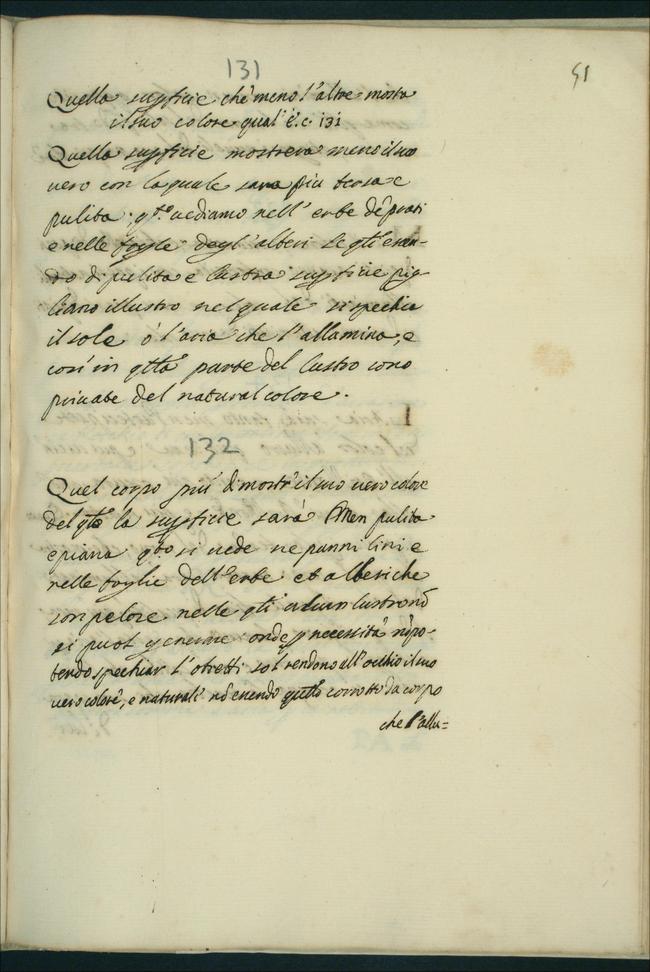 131
51
Quella supficie che meno l'altre mostra
il suo colore qual' è. c. 131
Quella supficie mostrera meno il suo
vero con la quale sara piu tersa e
pulita; qto. uediamo nell' erbe de prati
e nelle foglie degl' alberi le qti essen-
do di pulita e lustra supficie pig-
liano il lustro nel quale si spechia
il sole ò l'aria che l'allumina, e
cosi in qlla parte del lustro sono
priuate del natural colore.
132
Quel corpo più dimostr' il suo uero colore
del qle la supficie sarà Men pulita
e piana qto si uede ne panni lini e
nelle foglie dell' erbe et alberi che
son pelose nelle qli alcun lustro nō
si puot generare onde p necessità nō po-
tendo spechiar l'obietti sol rendono all' ochio il suo
uero colore, e naturale nō essendo qllo corrotto da corpo
che l'allu=